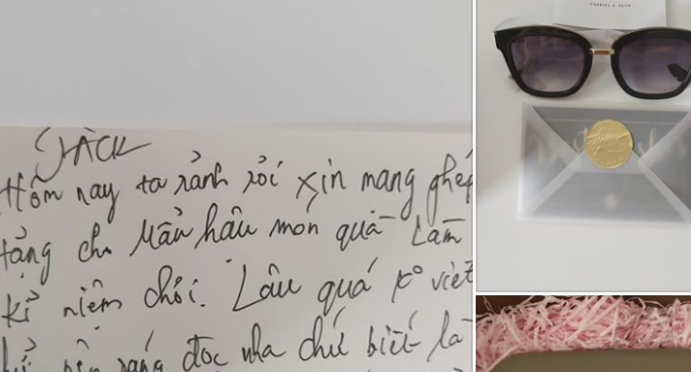 JACK
Hôm nay ta rảnh rỗi xin mang ghép
tặng cho Mẫu hậu món quà Làm
kỉ niệm chơi. Lâu quá k° viết
nên ráng đọc nha chứ biết là
CHARLES & KEITH